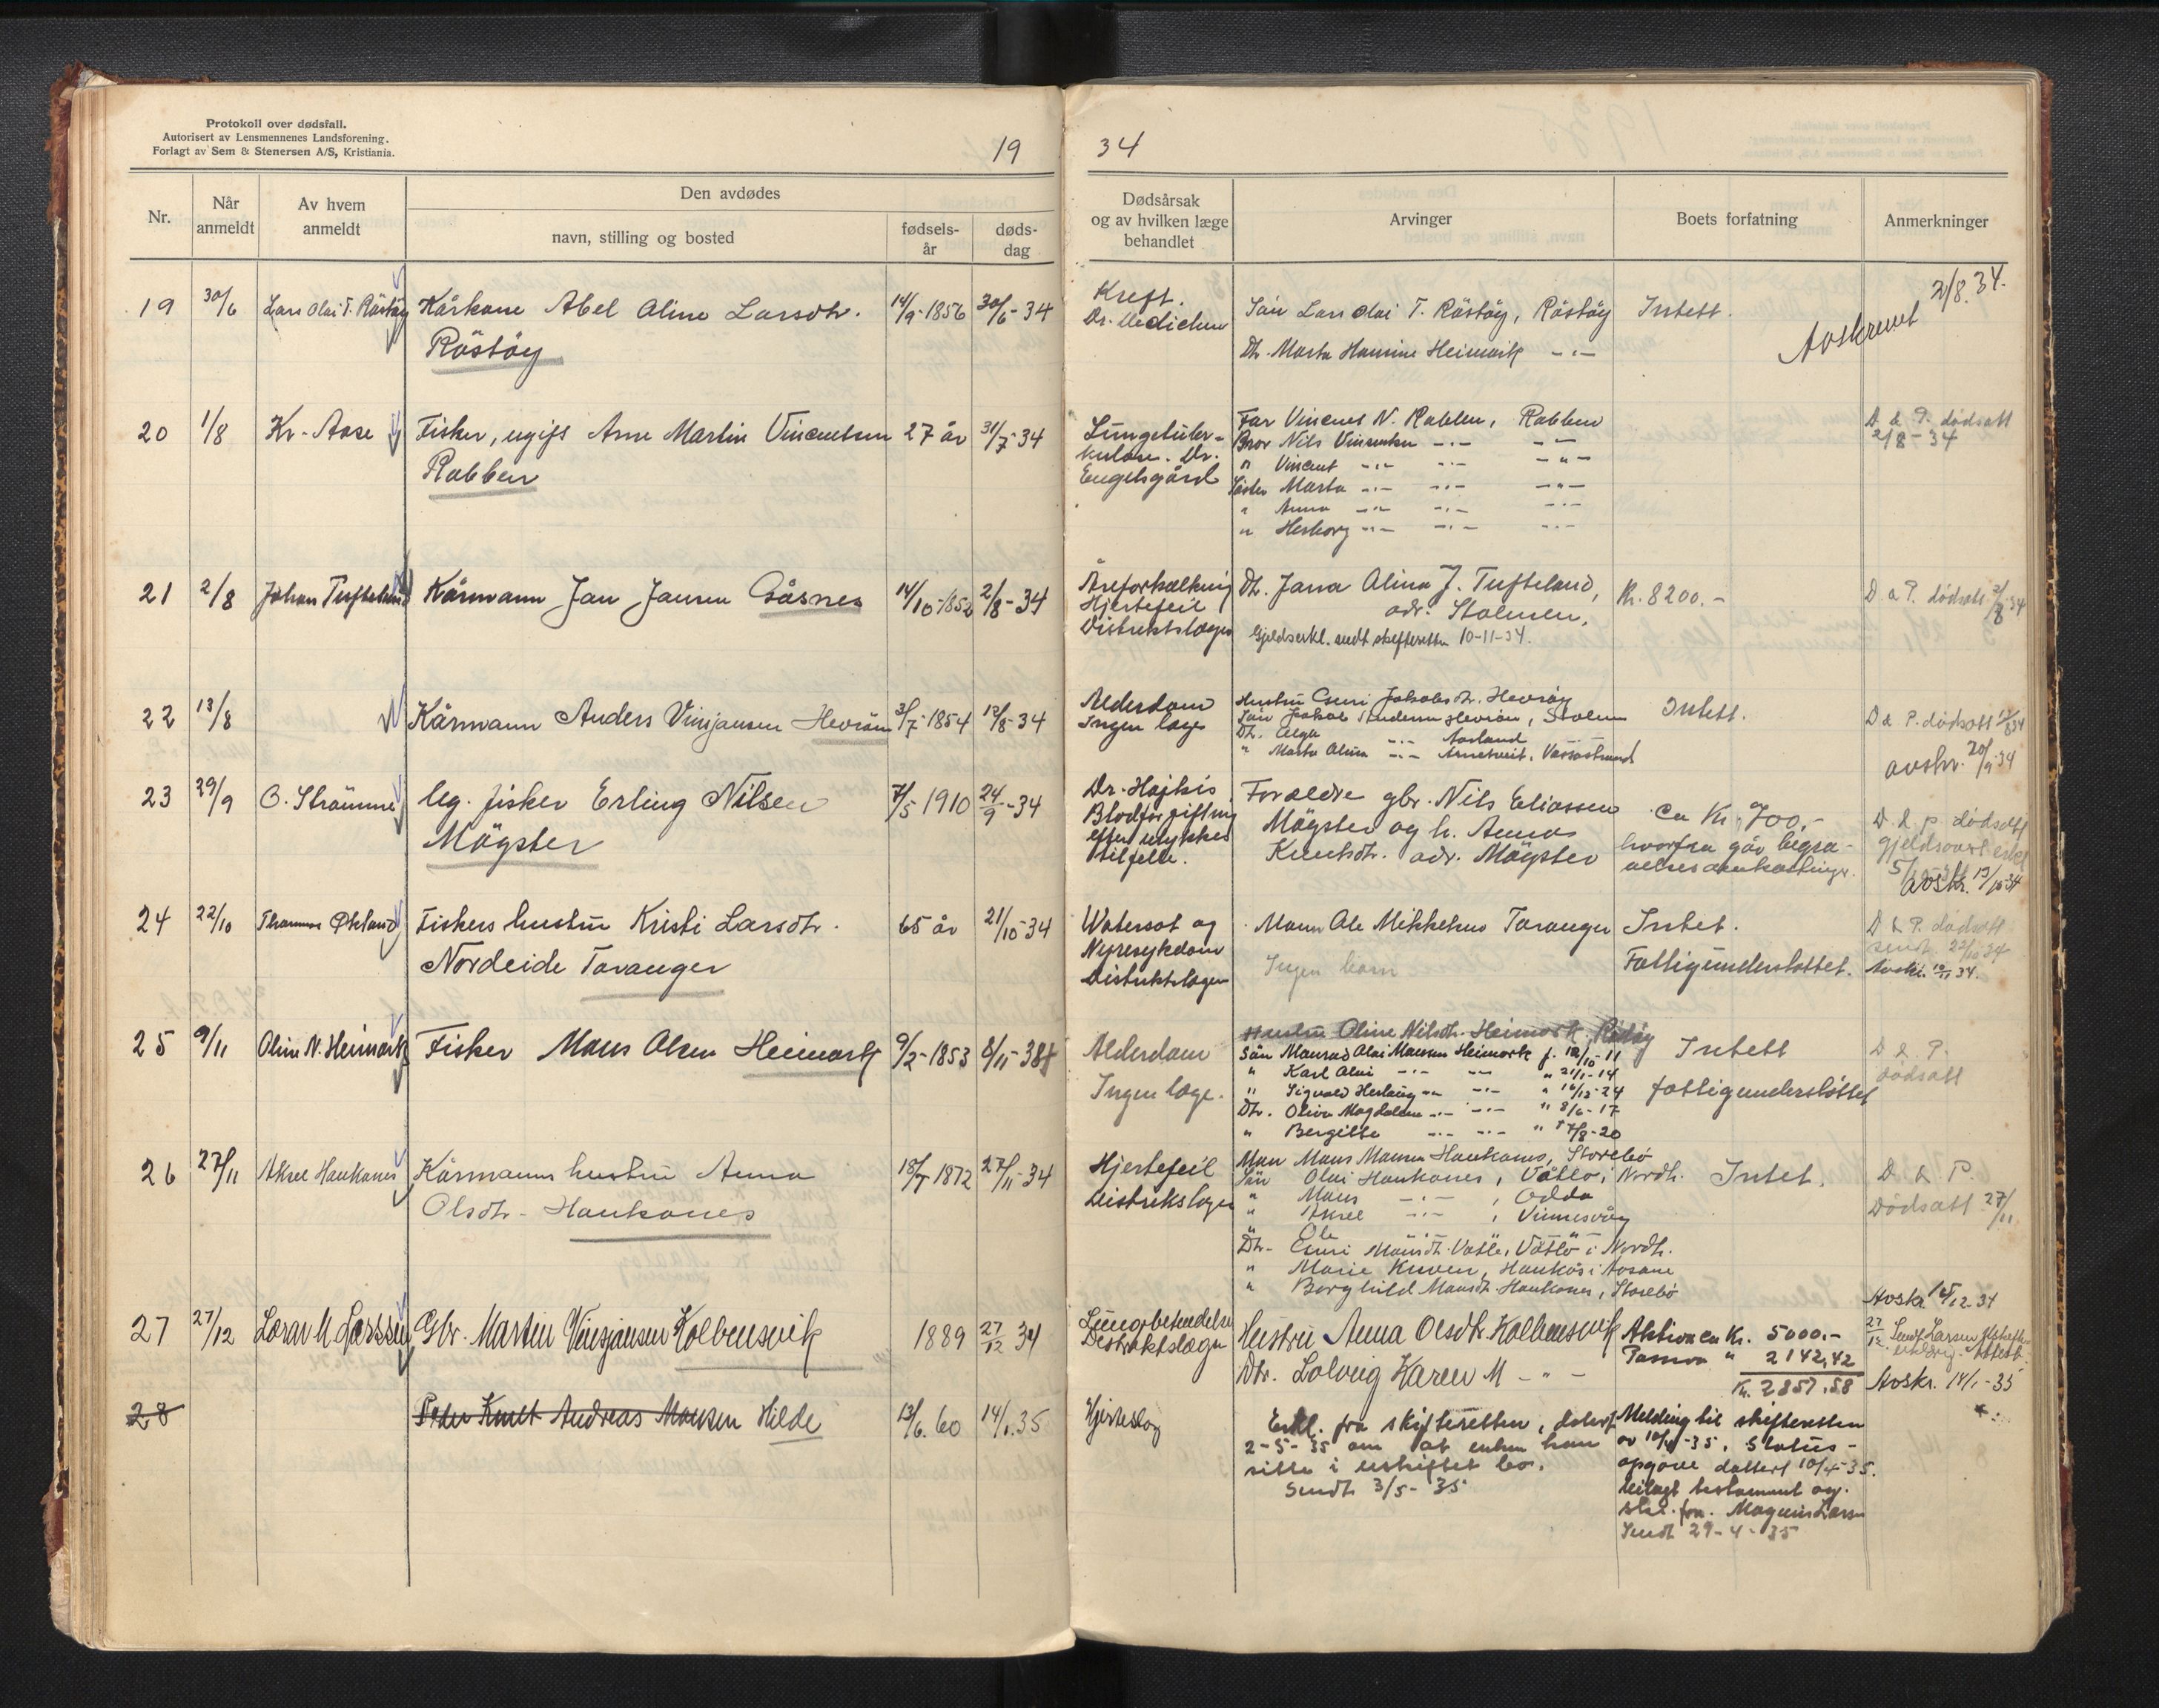 Protokoll over dødsfall.
Autorisert av Lensmennenes Landsforening.
Forlagt av Sem & Stenersen A/S, Kristiania.
19
34
Nr.
Når anmeldt
Av hvem anmeldt
Den avdødes
navn, stilling og bosted
fødsels-år
døds-dag
Dødsårsak
og av hvilken læge
behandlet
Arvinger
Boets forfatning
Anmerkninger
19 30/6 Lars Olai T. Röstöy Kårkone Abel Oline Larsdtr. 14/9-1856 30/6-34
Röstöy
Kreft.
Dr.
Sön Lars Olai T. Röstöy, Röstöy
Dtr. Marta Hansine Heimark -"-
Intett.
Avskrevet 2/8.34.
20 1/8 Kr. Aase Fisker, ugift Arne Martin Vincentsen 27 år 31/7-34
Rabben
Lungetuber-
kulose. Dr.
Engelsgård
Far Vincent N. Rabben, Rabben
Bror Nils Vincentsen -"- -"-
" Vincent -"- -"- -"-
Söster Marta -"- -"- -"-
" Anna -"- -"- -"-
" Herborg -"- -"- -"-
D & P. dödsatt
2/8-34
21 2/8 Johan Tufteland Kårmann Jan Jansen Gåsnes 14/10-1852 2/8-34
Åreforkalkning
Hjertefeil
Distriktslægen
Dtr. Jana Alina J. Tufteland,
adr. Stolmen,
Gjeldserkl. sendt skifteretten 10-11-34.
Kr. 8200.-
D & P. dödsatt 2/8 34
22 13/8 Kårmann Anders Vinsjansen Hevröen 3/7-1854 12/8-34
Alderdom
Ingen læge
Hustru Guri Jakobsdtr. Hevröy
Sön Jakob Andersen Hevröen, Stolmen
Dtr. Olga -"- Aarland
" Marta Olina -"- Arnetveit,
Intett.
D & P. dödsatt
avskr. 20/9 34
23 29/9 O. Strömme Ug. fisker Erling Nilsen 7/5 1910 24/9-34
Mögster
Dr.
Blodforgiftning
efter ulykkes
tilfelle.
Foreldre gbr. Nils Eliassen
Mögster og h. Anna
Knutsdtr. adr. Mögster
Ca Kr 700.-
hvorfra går begra-
velsesomkostninger.
D. & P. dödsatt
5/10
Avskr. 13/10-34
24 22/10 Thomas Økland Fiskers hustru Kristi Larsdtr. 65 år 21/10-34
Nordeide Taranger
Watersot og
Nyresykdom
Distriktslægen
Mann Ole Mikkelsen Taranger
Ingen barn
Intet.
Fattigunderstöttet.
D & P. dödsatt
sendt 22/10 34
Avskr. 10/11 34.
25 9/11 Oline N. Heimark Fisker Mons Olsen Heimark 9/2-1853 8/11-34
Alderdom
Ingen læge.
Hustru Oline Nilsdtr. Heimark,
Sön Monrad Olai Monsen Heimark f. 12/10-11
" Karl Olai -"- -"- " 21/1-14
" Sigvald Herlaug -"- -"- " 16/12-24
Dtr. Olina Magdalena -"- -"- " 8/6-17
" Bergitte -"- -"- " 17/8-20
Intett
fattigunderstöttet
D & P.
dödsatt
26 27/11 Aksel Haukanes Kårmanns hustru Anna 18/5 1872 27/11-34
Olsdtr. Haukanes
Hjertefeil
Distriktslægen
Man Mons Monsen Haukanes, Storebö
Sön Olai Haukanes, Våtlö i Nordh.
" Mons -"-, Odda
" Aksel -"-, Vinnesvåg
" Ole -"- -"-
Dtr. Guri Monsdtr. Våtlö, Våtlö i Nordh.
" Marie Kuven, Haukås i Aasane
" Borghild Monsdtr. Haukanes, Storebö
Intet.
D & P.
Dödsatt 27/11
Avskr. 12-34
27 27/12 Lorav M Larssen Gbr. Martin Vinsjansen Kolbeinsvik 1889 27/12 34
Lungebetendelse
Distriktslægen
Hustru Anna Olsdtr. Kolbeinsvik
Dtr. Solveig Karen M -"-
Aktiva ca Kr. 5000.-
Passiva " 2142,42
Kr. 2857.58
27/12 Sendt Larsen
Avskr. 14/1-35
28 Peder Knut Andreas Monsen Hilde 13/6.60 14/1.35
Hjerteslag
Erkl. fra skifteretten, datert
2-5-35 om at enken kan
sitte i uskiftet bo.
Sendt 3/5-35
Melding til skifteretten
av 10/4-35. Status-
opgave datert 10/4-35.
Bilagt testament og
fra Magnus Larsen
Sendt 29-4-35